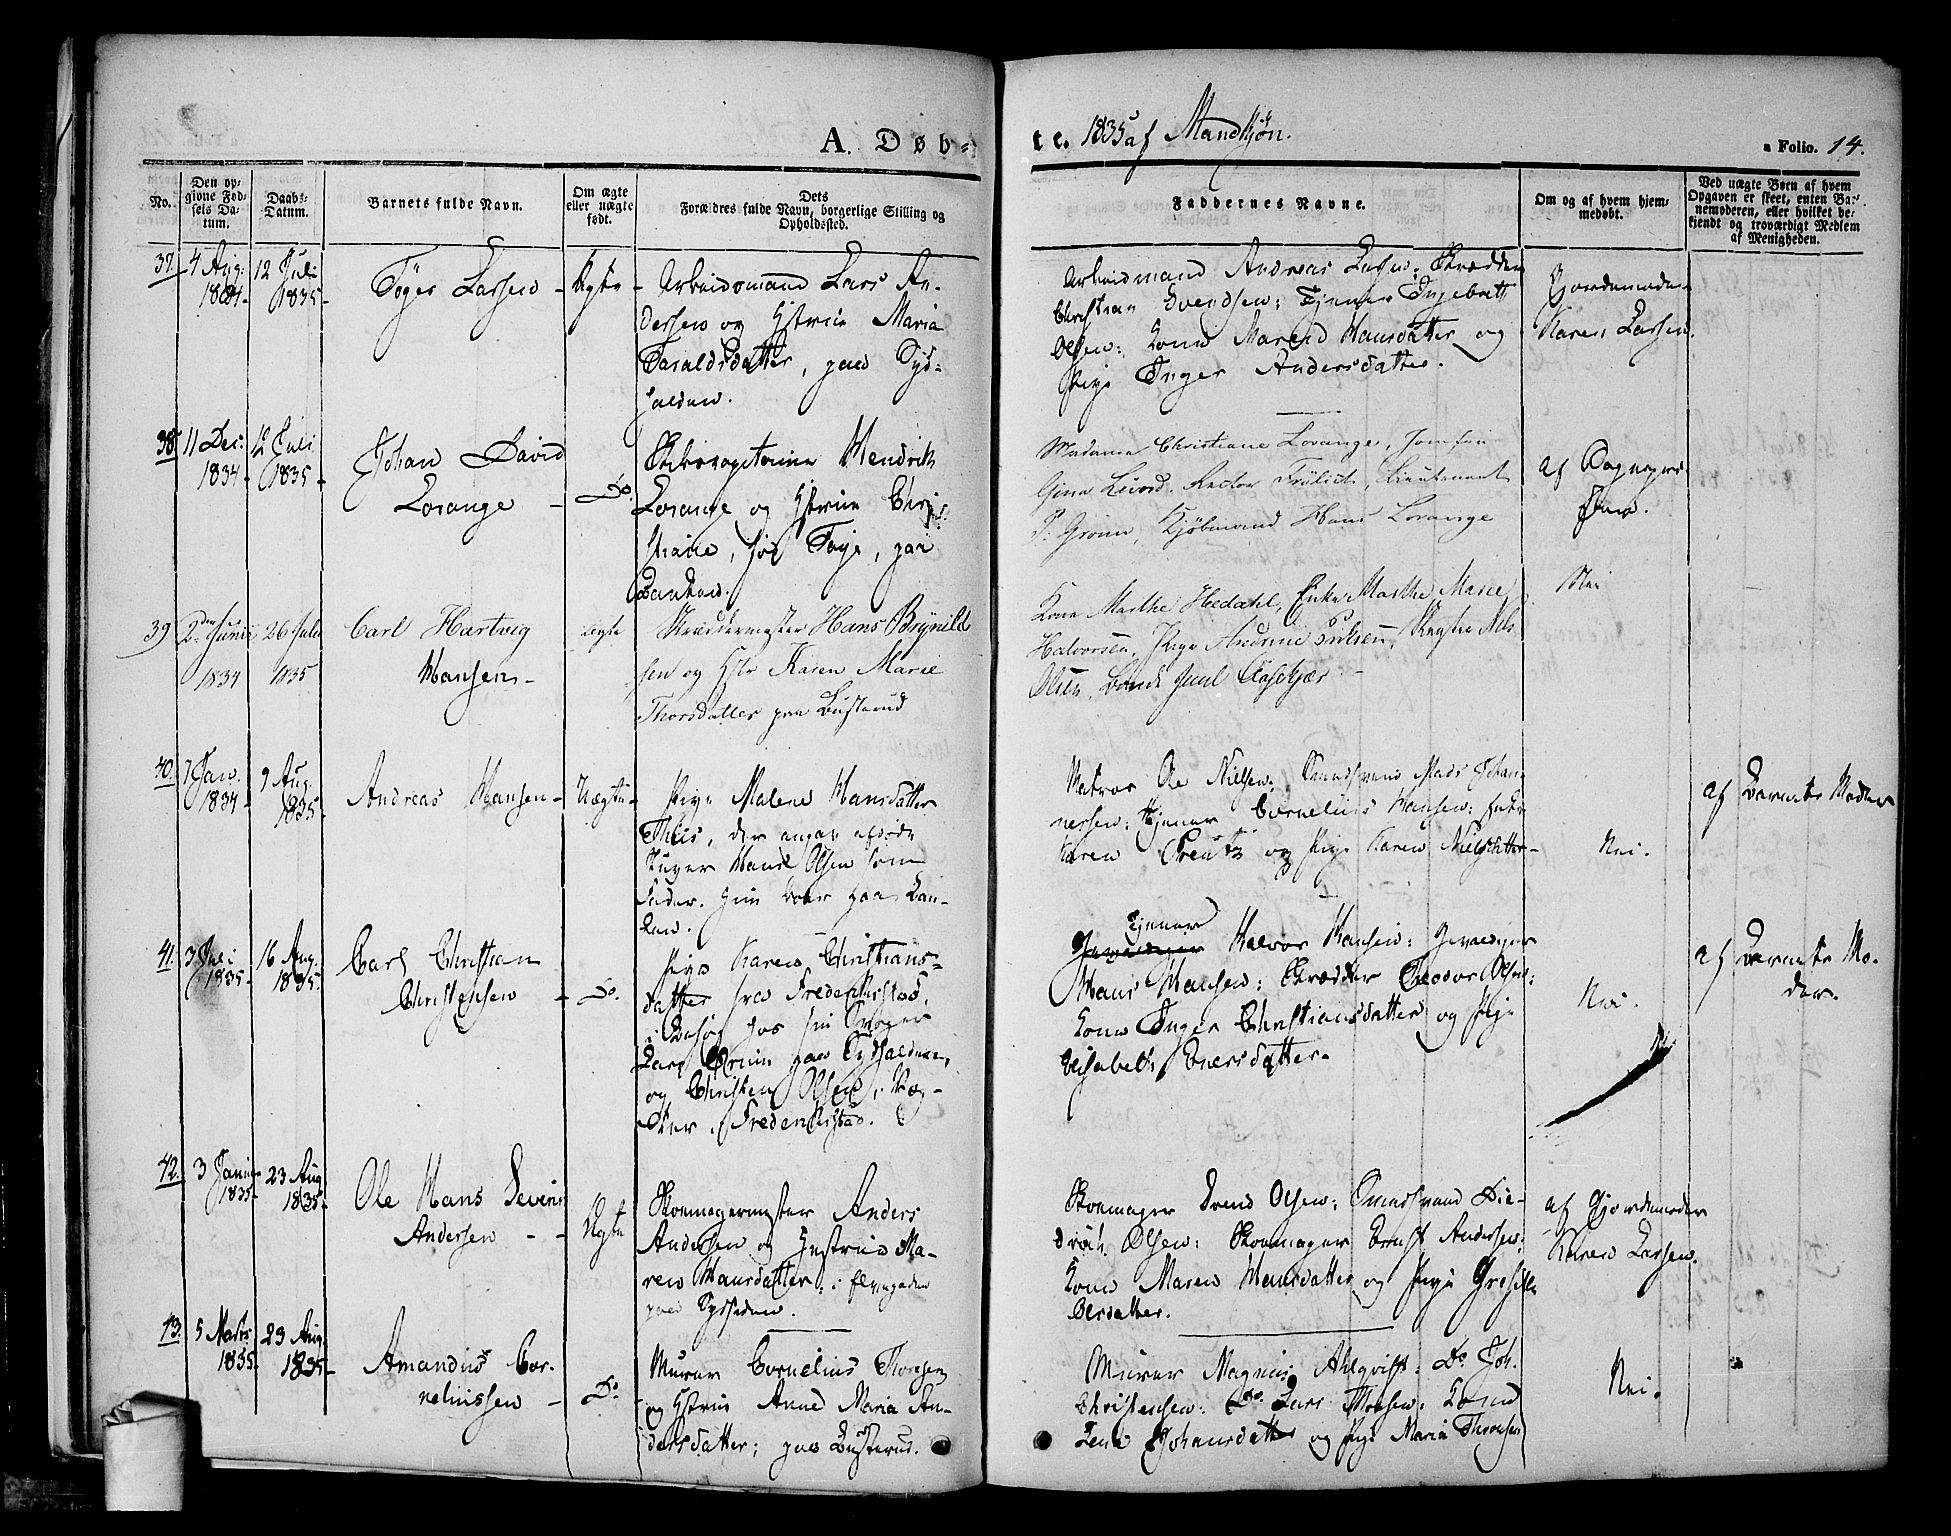 A. Døb-
te. 1835 af Mandkjøn.
a Folio. 14.
No.
Den opgivne Fødsels Datum.
Daabs-Datum.
Barnets fulde Navn.
Om ægte eller uægte født.
Dets Forældres fulde Navn, borgerlige Stilling og Opholdssted.
Faddernes Navne.
Om og af hvem hjemmedøbt.
Ved uægte Børn af hvem Opgaven er skeet, enten Barnemoderen, eller hvilket bekjendt og troværdigt Medlem af Menigheden.
37. 4 Aug: 12 Juli
1834- 1835-
Larsen - Ægte -
Arbeidsmand Lars An-
dersen og Hstrue Maria
Taraldsdatter, paa Syd-
halden.
Arbeidsmand Andreas Larsen: Skrædder
Christian Svendsen: Tjener Ingebrett
Olsen: Kone Maren Hansdatter og
Pige Inger Andersdatter.
Gjordemoder
Karen Larsen.
38. 11 Dec: 12 Juli
1834- 1835-
Johan David
Lorange - Do.
Skibscapitaine Hendrik
Lorange og Hstrue Chri-
stiane, fød Faye, paa
Banken.
Madame Christiane Lorange, Jomfru
Rector Frölich, Lieutenant
P: Grønn, Kjøbmand Hans Lorange
af
39 2den Junii 26 Julii
1834 1835
Carl Hartvig
Hansen-
ægte
Skræddermester Hans Brynild
sen og Hstr Karen Marie
Thorsdatter paa Busterud
Kone Marthe Hedahl, Enke Marthe Marie
Halvorsen, Pige Andrine
Olsen,
Nei
40. 7 Jan. 9 Aug.
1834- 1835-
Andreas Hansen - Uægte -
Pige Malene Hansdatter
Thiis, der angav afdøde
Hans Olsen som
Fader. Hun boer paa Ban-
ken.
Matros Ole Nielsen: Mads Johan-
nessen: Tjener Cornelius Hansen: Enke
Karen og Pige Karen Nielsdatter-
Nei.
af Barnets Moder
41. 3 Juli 16 Aug.
1835- 1835.
Carl Christian
Christensen - Do.
Pige Karen Christians-
datter fra Frederikstad,
i Besøg hos sin Svoger
Lars paa Sydhalden,
og Christen Olsen,
Frederikstad.
Tjener
Halvor Hansen:
Hans Hansen: Skrædder Theodor Olsen:
Kone Inger Christiansdatter og Pige
Elisabeth Eversdatter-
Nei.
af Barnets Mo-
der.
42. 3 Januar 23 Aug
1835- 1835-
Ole Hans Severin
Andersen - - Ægte
Skomagermester Anders
Andersen og Hustrue Ma-
ren Hansdatter: i Elvegaden
paa Sydsiden.
Skomager Svend Olsen: Die-
drich Olsen: Skomager Ernst Andersen:
Kone Maren Hansdatter og Pige
Olersdatter.
af Gjordemoder
Karen Larsen.
43. 5 Marts 23 Aug
1835- 1835-
Amandus Cor-
neliussen - Do
Murer Cornelius Thoresen
og Hstrue Anne Maria An-
dersdatter; paa Busterud.
Murer Magnus Ahlqvist: Do. Joh.
Christensen: Do. Lars Kone
Lene Johansdatter og Pige Maria Thoresen
Nei.